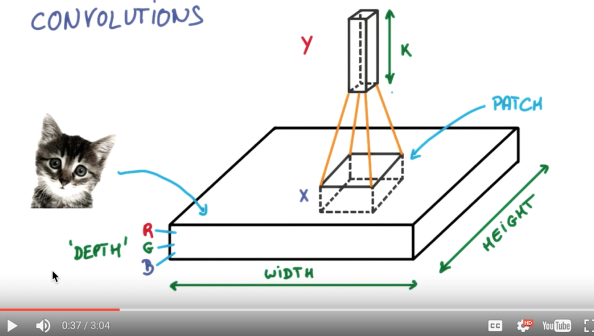 CONVOLUTIONS
Y
K
PATCH
X
R
G
B
'DEPTH'
WIDTH
HEIGHT
0:37 / 3:04
CC
HD
YouTube